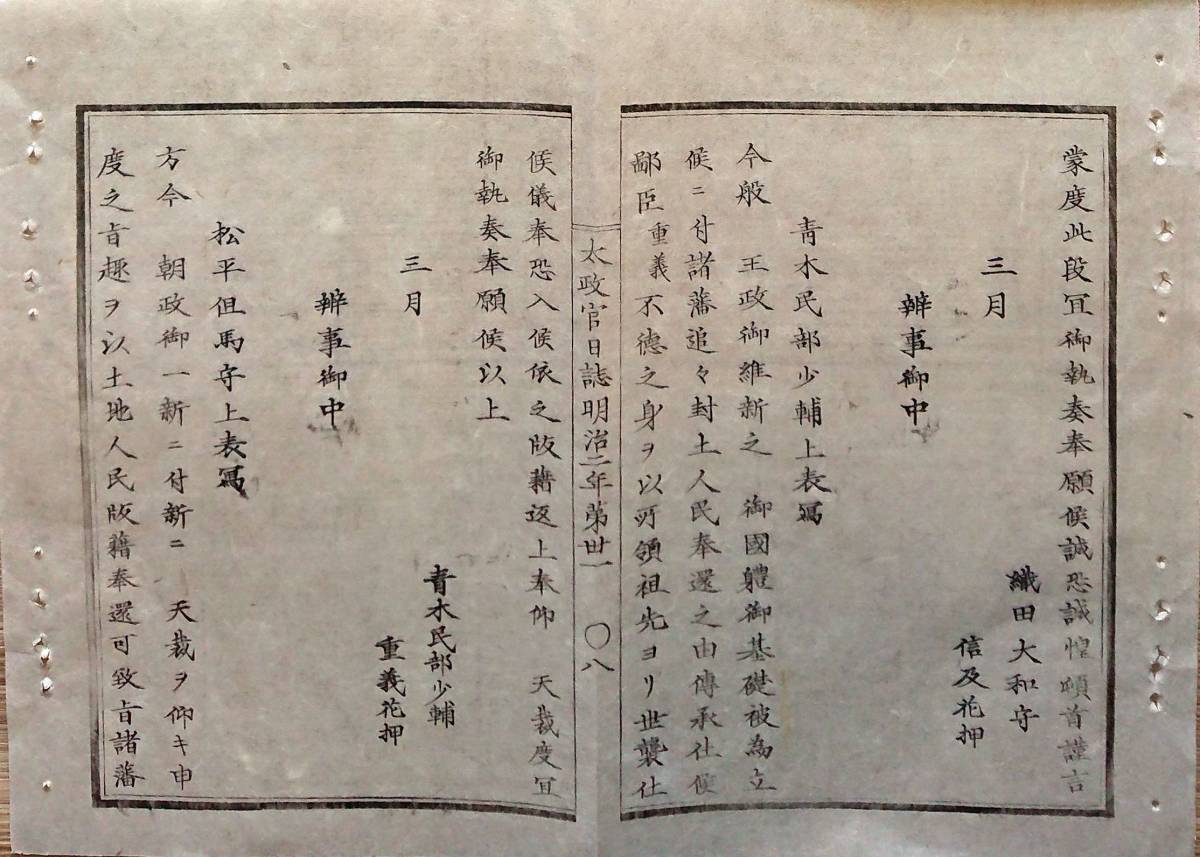 蒙度此段冝御執奏奉願候誠恐誠惶頓首謹言
織田大和守
三月
信及花押
辨事御中
青木民部少輔上表寫
今般　王政御維新之　御國體御基礎被為立
候ニ付諸藩追々封土人民奉還之由傳承仕候
鄙臣重義不德之身ヲ以所領祖先ヨリ世襲仕
太政官日誌明治二年第卅一　〇八
候儀奉恐入候依之版籍返上奉仰　天裁度冝
御執奏奉願候以上
青木民部少輔
三月
重義花押
辨事御中
松平但馬守上表寫
方今　朝政御一新ニ付新ニ　天裁ヲ仰キ申
度之旨趣ヲ以土地人民版籍奉還可致旨諸藩